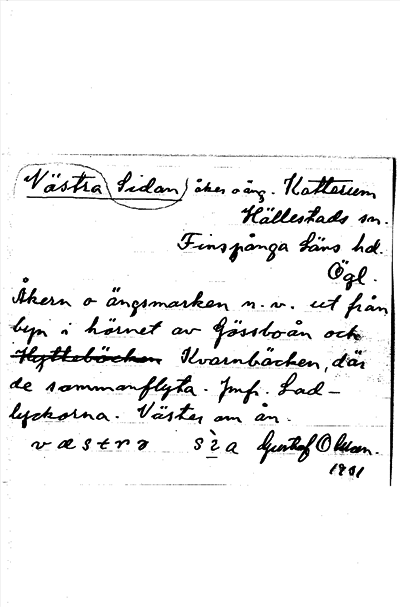 Västra Sidan, åker o äng. Katterum
Hällestads sn.
Finspånga läns hd.
Ögl.
Åkern o ängsmarken n.v. ut från
byn i hörnet av Gössboån och
Hyttebäcken Kvarnbäcken, där
de sammanflyta. Jmf. Lad-
lyckorna. Väster om ån.
væstrə sìa Gusthaf Olsson.
1931